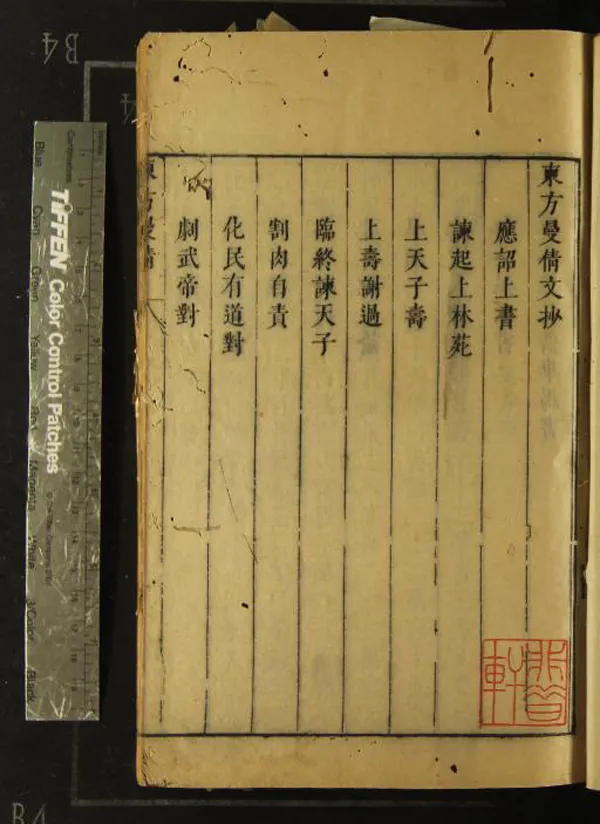 東方曼倩文抄
應詔上書
諫起上林苑
上天子壽
上壽謝過
臨終諫天子
割肉自責
化民有道對
剌武帝對
東方曼倩
B4
TIFFEN Color Control Patches
Centimetres
Blue
Cyan
Green
Yellow
Red
Magenta
White
3/Color
Black
B4